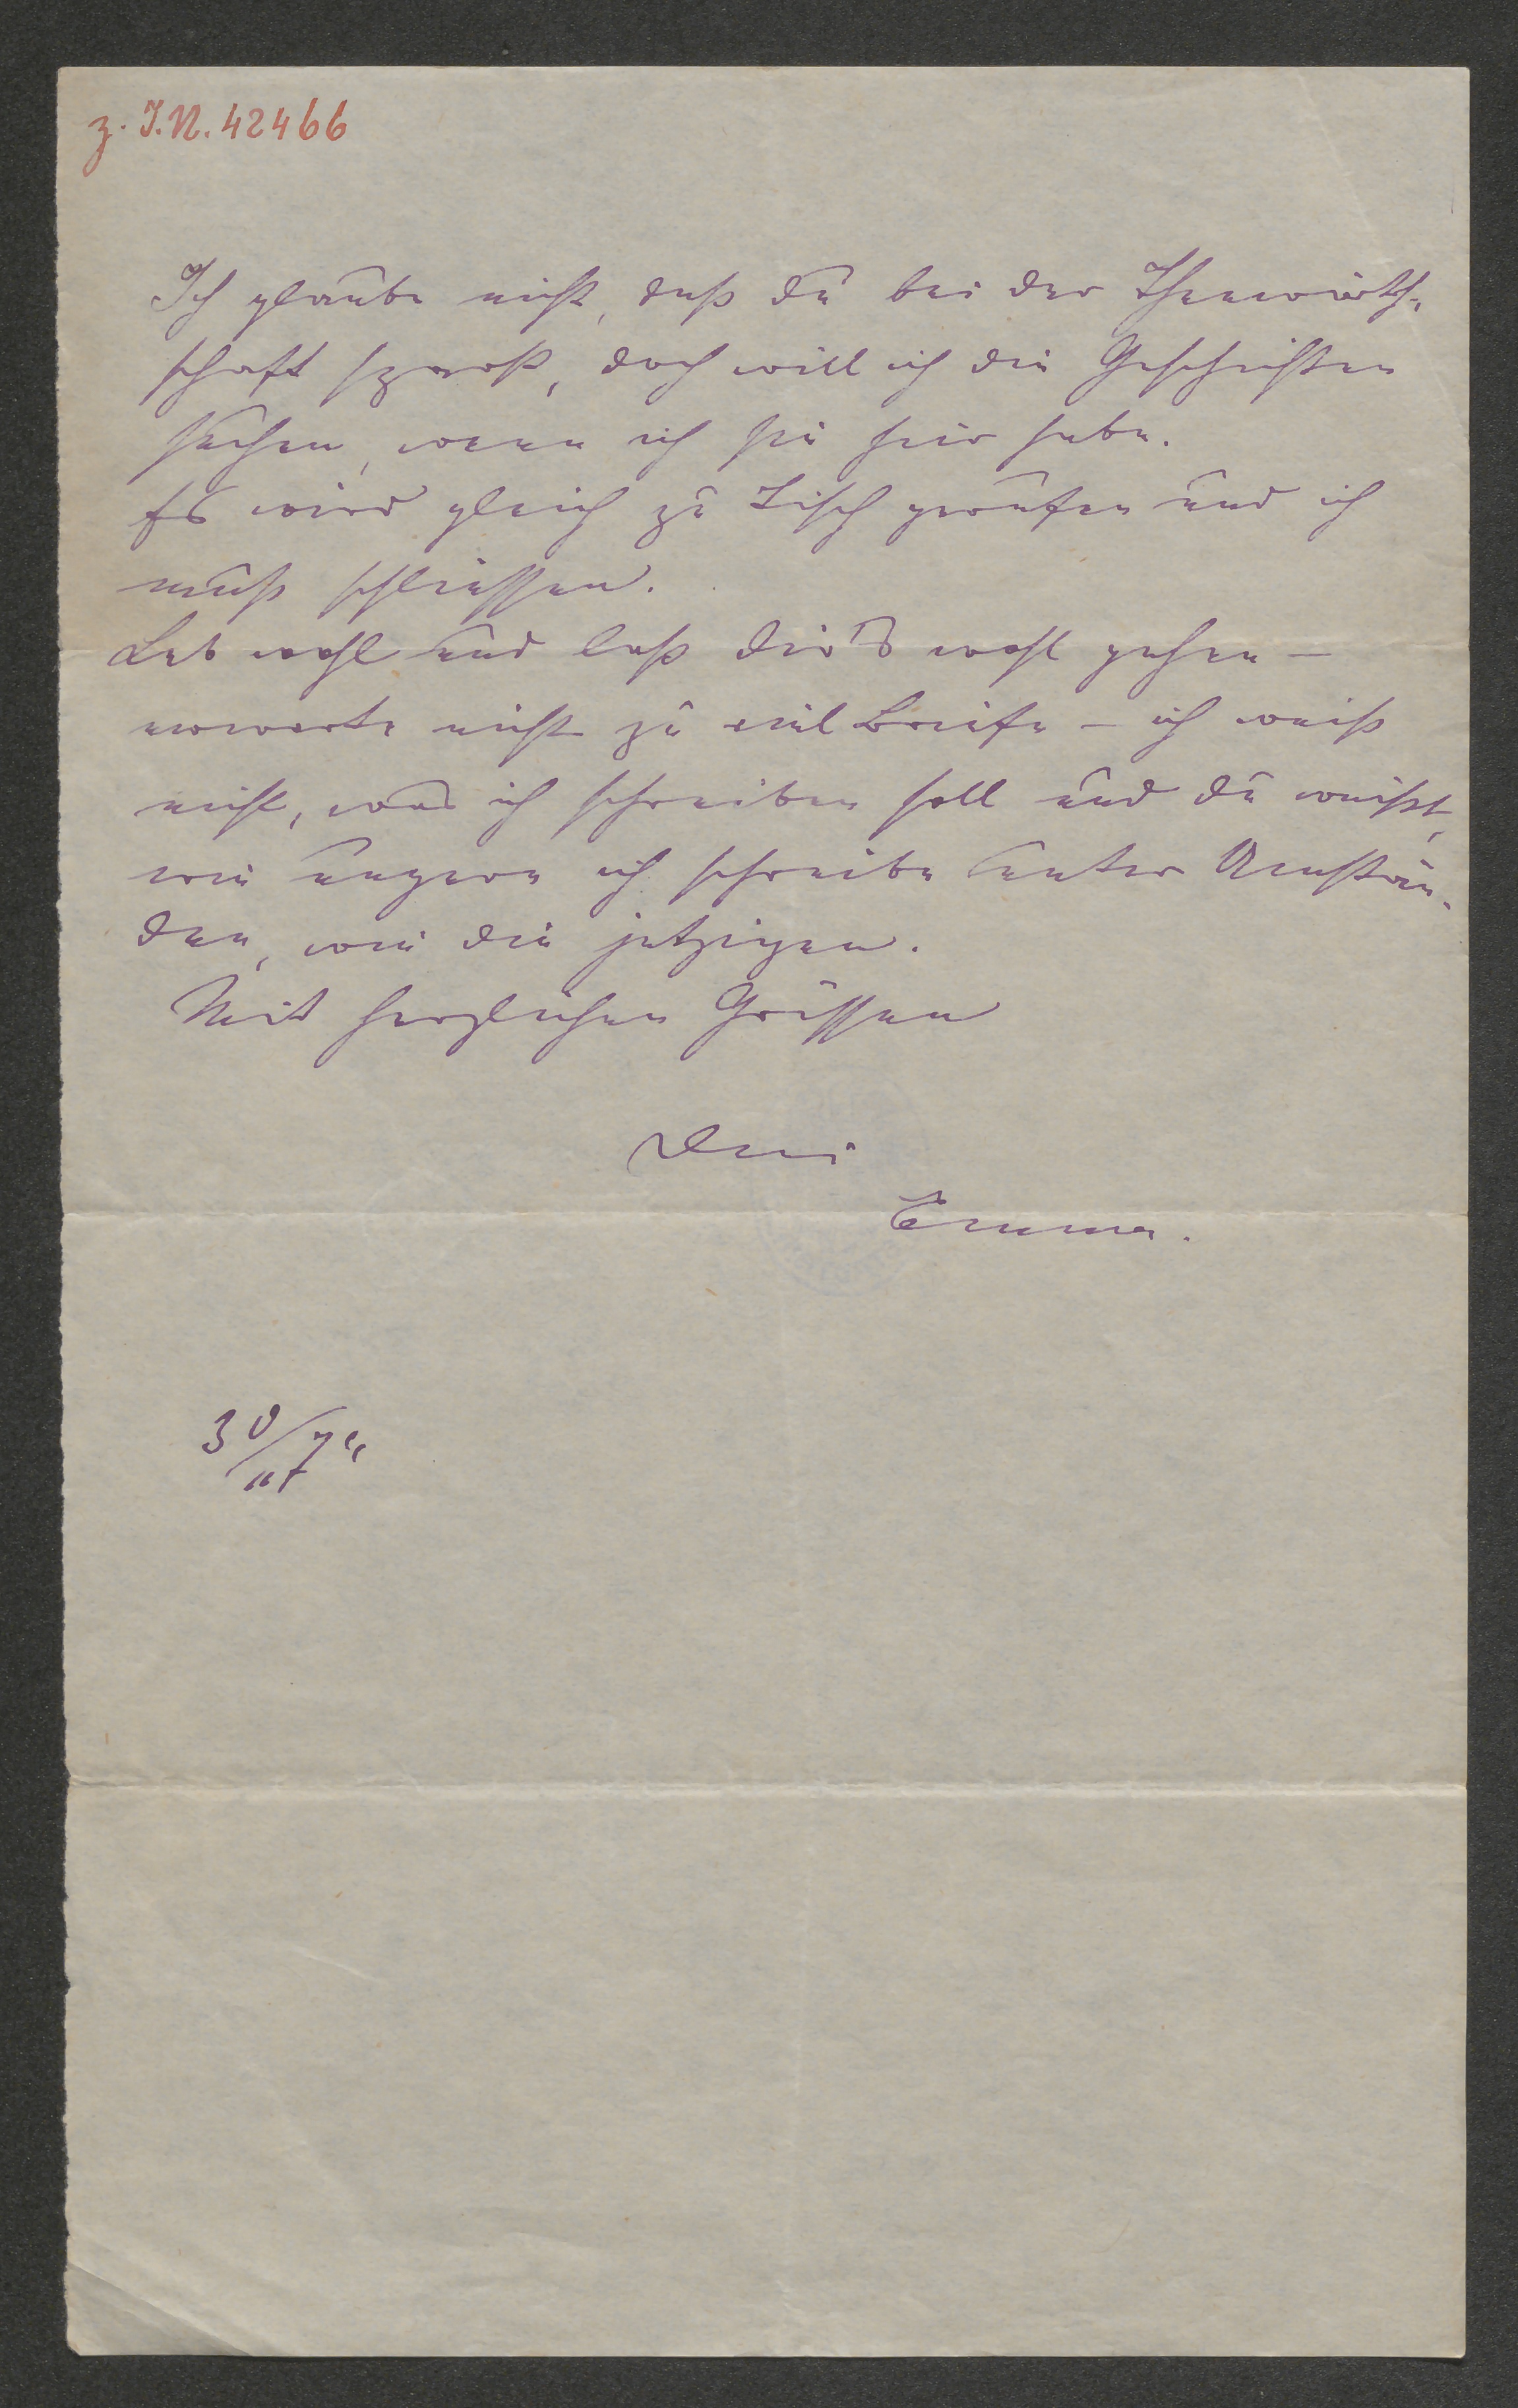 z. I.N. 42466
Ich glaube nicht, daß du bei der Theewirth-
schaft sparst, doch will ich die Geschichten
suchen, wenn ich sie hier habe.
Es wird gleich zu Tisch gerufen und ich
muß schliessen.
Leb wohl und laß dir's wohl gehen –
erwarte nicht zu viel Briefe – ich weiß
nicht, was ich schreiben soll und du weißt,
wie ungern ich schreibe unter Umstän-
den, wie die jetzigen.
Mit herzlichen Grüssen
Emma.
30/7